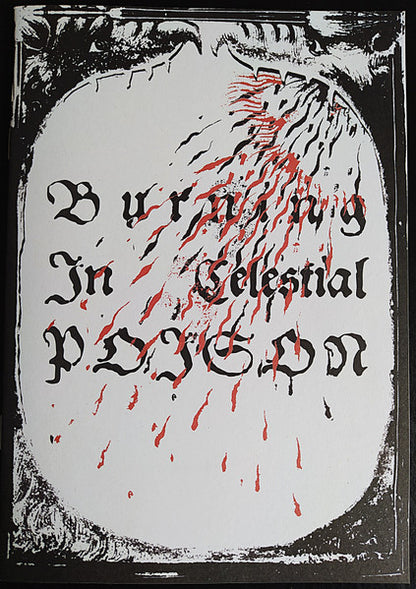 Burning
In Celestial
POISON